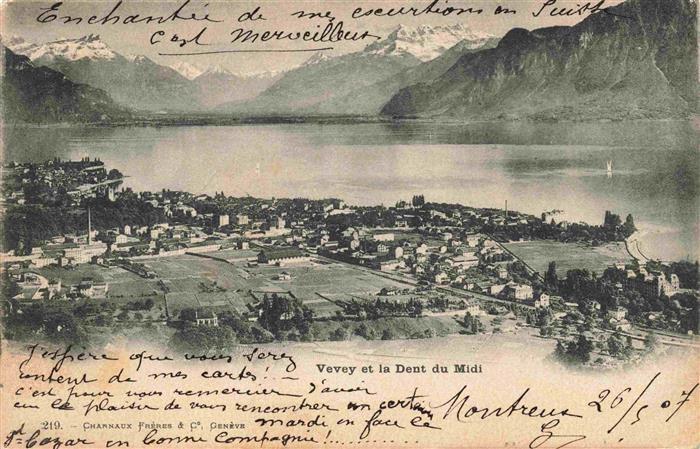 Enchantée de mes escurtions en Suisse
c'est merveilleux
J'espère que vous serez
content de mes cartes! ...
c'est pour vous remercier d'avoir
eu le plaisir de vous rencontrer un certain
mardi en face le
Bazar en bonne Compagnie! ........
Vevey et la Dent du Midi
Montreux 26/5 07
219. - CHARNAUX FRÈRES & Cº, GENÈVE